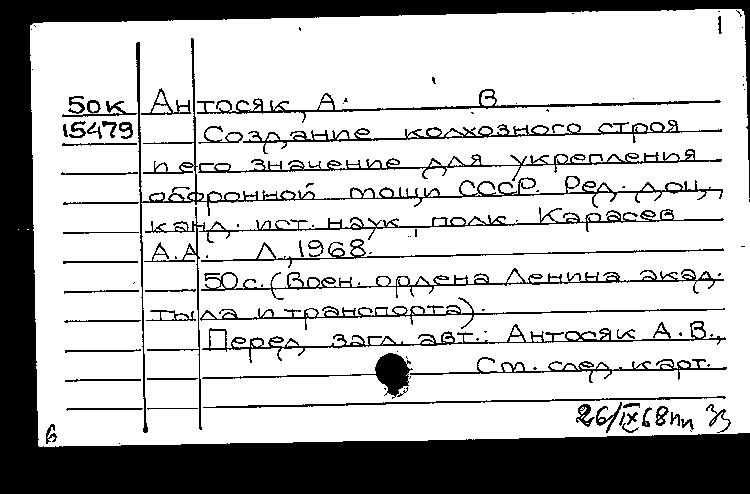 1
50К Антосяк, А. В
15479 Создание колхозного строя
и его значение для укрепления
оборонной мощи СССР. Ред. доц.,
канд. ист. наук, полк. Карасев
А.А. Л., 1968.
50с. (Воен. ордена Ленина акад.
тыла и транспорта).
Перед загл. авт.: Антосяк А.В.,
См. след. карт.
26/IX68
6